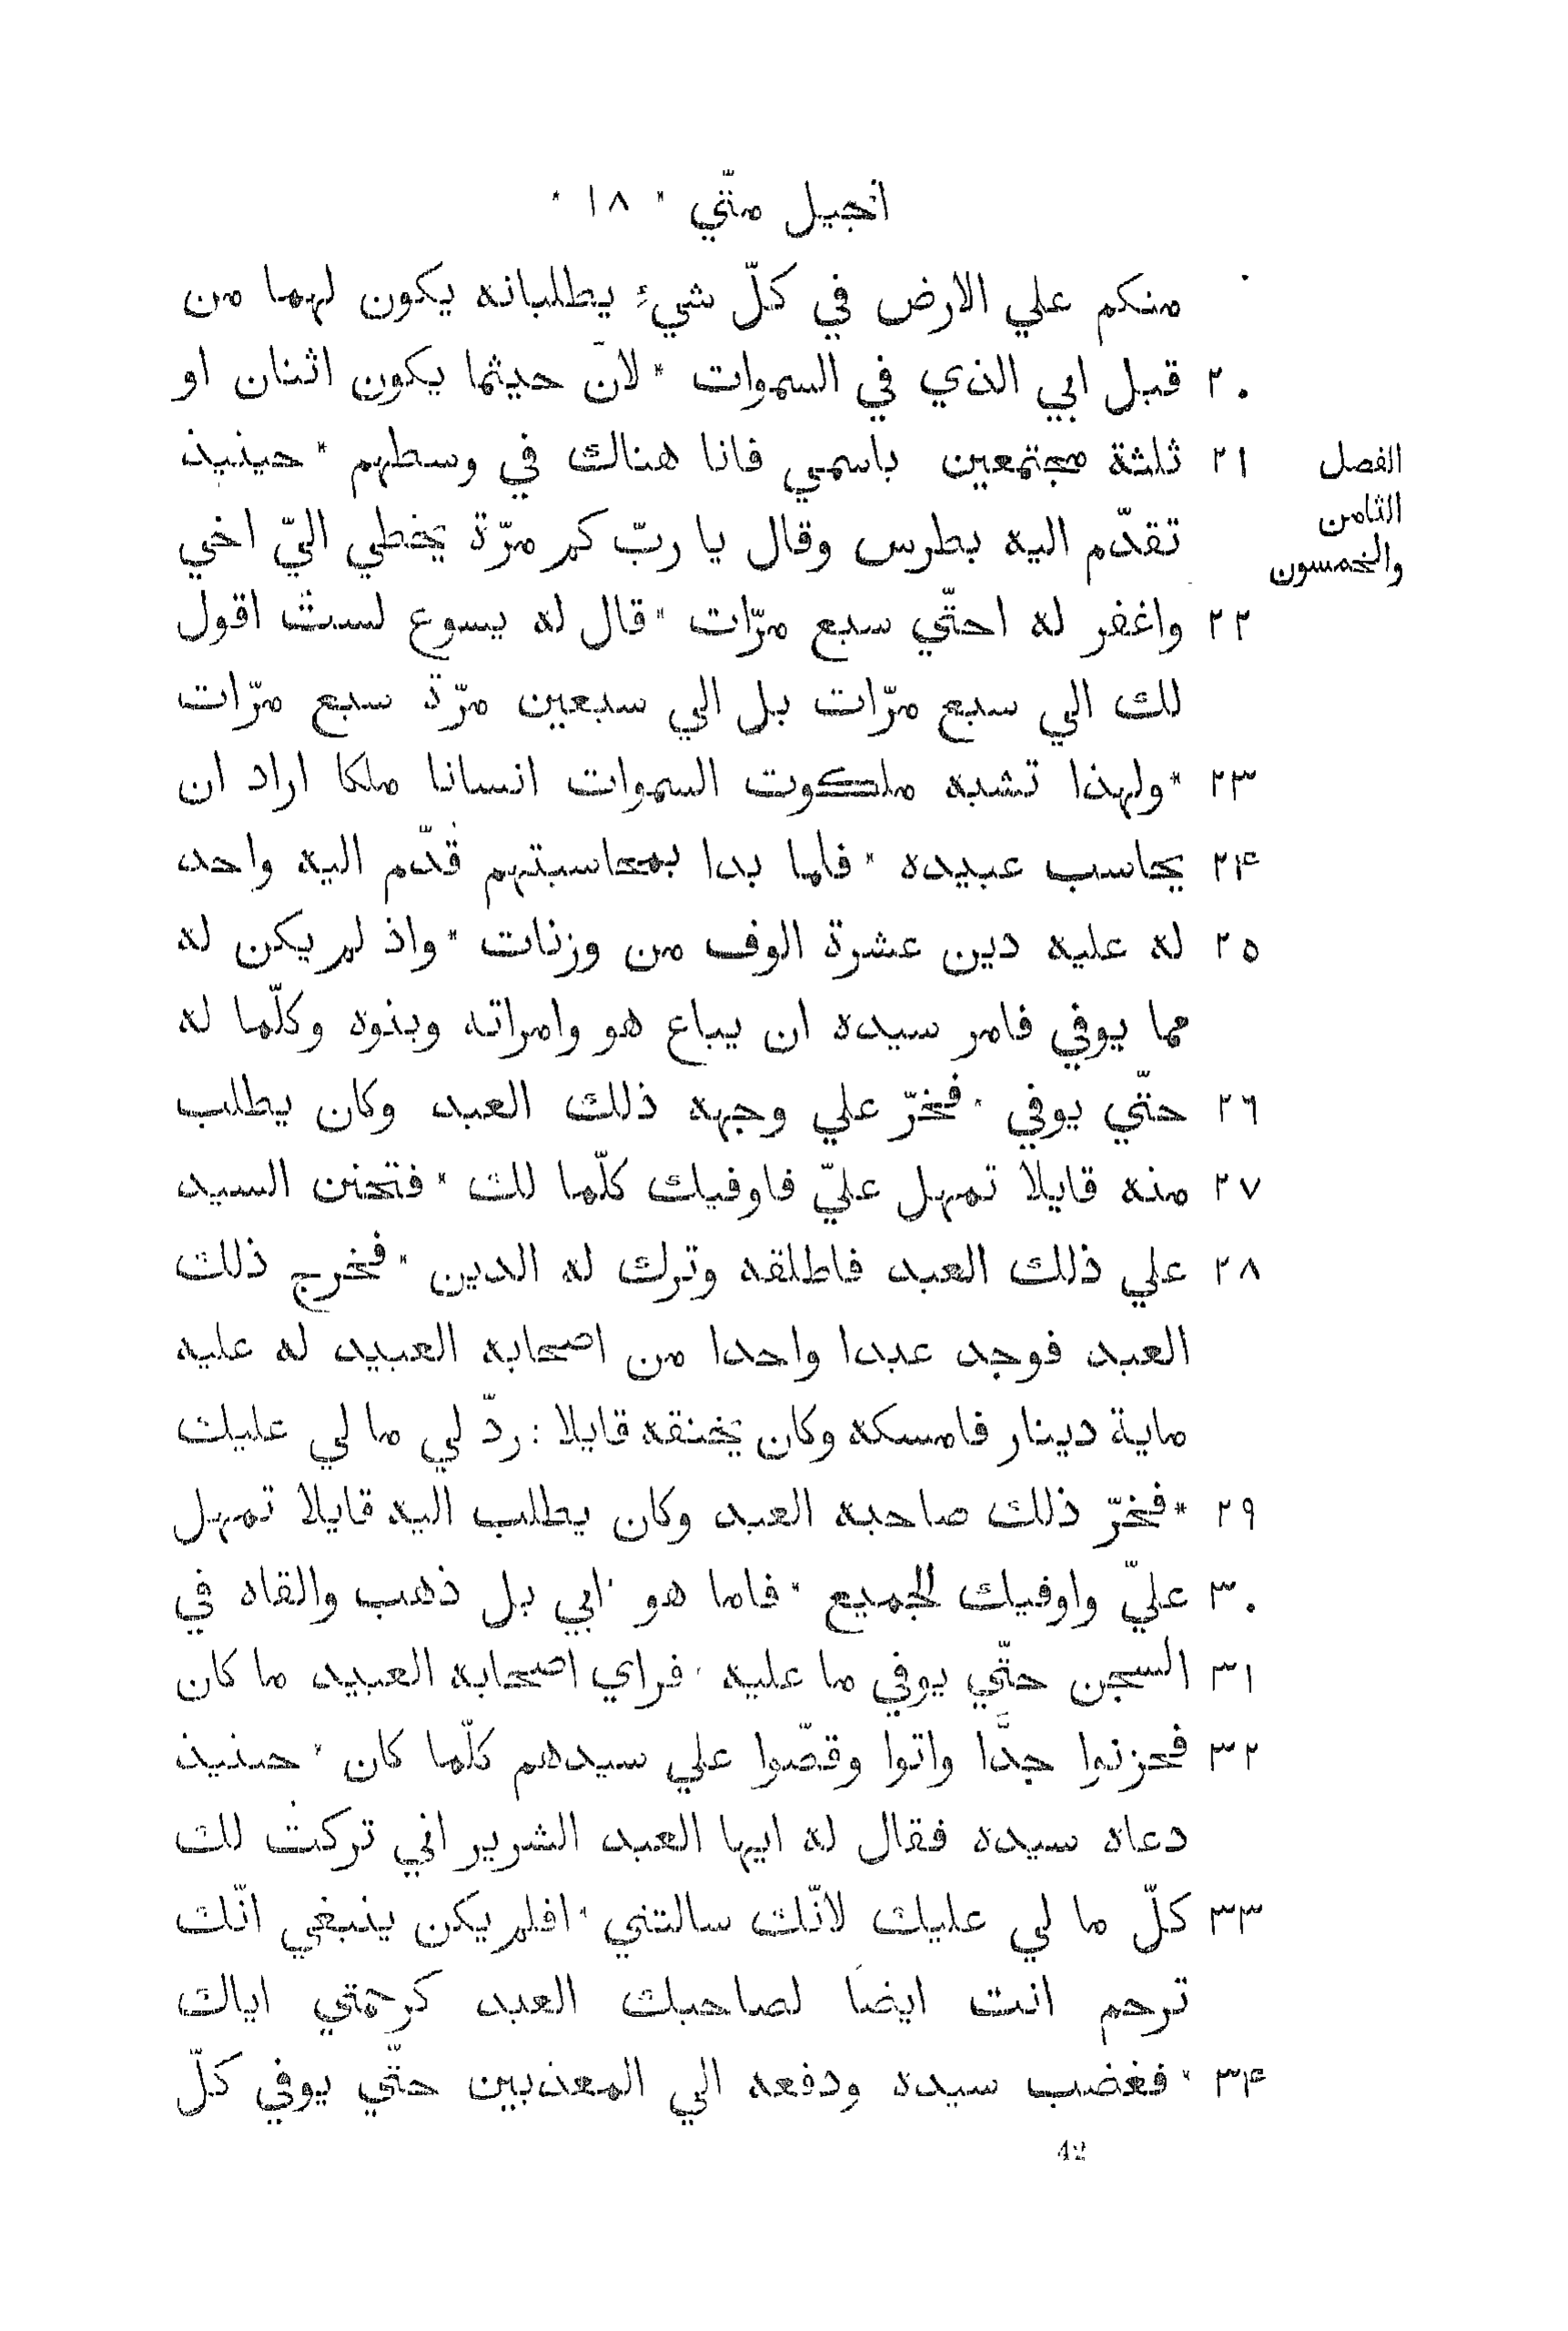 انجيل متّي * ١٨ *
منكم علي الارض في كلّ شيءٍ يطلبانه يكون لهما من
٢٠ قبل ابي الذي في السموات * لانّ حيثما يكون اثنان او
٢١ ثلثة مجتمعين باسمي فانا هناك في وسطهم * حينيذ
الفصل
الثامن
والخمسون
تقدّم اليه بطرس وقال يا ربّ كم مرّة يخطي اليّ اخي
٢٢ واغفر له احتّي سبع مرّات * قال له يسوع لستُ اقول
لك الي سبع مرّات بل الي سبعين مرّة سبع مرّات
٢٣ * ولهذا تشبه ملكوت السموات انسانا ملكا اراد ان
٢۴ يحاسب عبيده * فلما بدا بمحاسبتهم قُدّم اليه واحد
٢٥ له عليه دين عشرة الوف من وزنات * واذ لم يكن له
مما يوفي فامر سيده ان يباع هو وامراته وبنوه وكلّما له
٢٦ حتّي يوفي * فخرّ علي وجهه ذلك العبد وكان يطلب
٢٧ منه قايلا تمهل عليّ فاوفيك كلّما لك * فتحنن السيد
٢٨ علي ذلك العبد فاطلقه وترك له الدين * فخرج ذلك
العبد فوجد عبدا واحدا من اصحابه العبيد له عليه
ماية دينار فامسكه وكان يخنقه قايلا : ردّ لي ما لي عليك
٢٩ * فخرّ ذلك صاحبه العبد وكان يطلب اليه قايلا تمهل
٣٠ عليّ واوفيك الجميع * فاما هو ابي بل ذهب والقاه في
٣١ السجن حتّي يوفي ما عليه * فراي اصحابه العبيد ما كان
٣٢ فحزنوا جدًّا واتوا وقصّوا علي سيدهم كلّما كان * حينيذ
دعاه سيده فقال له ايها العبد الشرير اني تركتُ لك
٣٣ كلّ ما لي عليك لانّك سالتني * افلم يكن ينبغي انّك
ترحم انت ايضًا لصاحبك العبد كرحمتي اياك
٣۴ * فغضب سيده ودفعه الي المعذبين حتّي يوفي كلّ
42